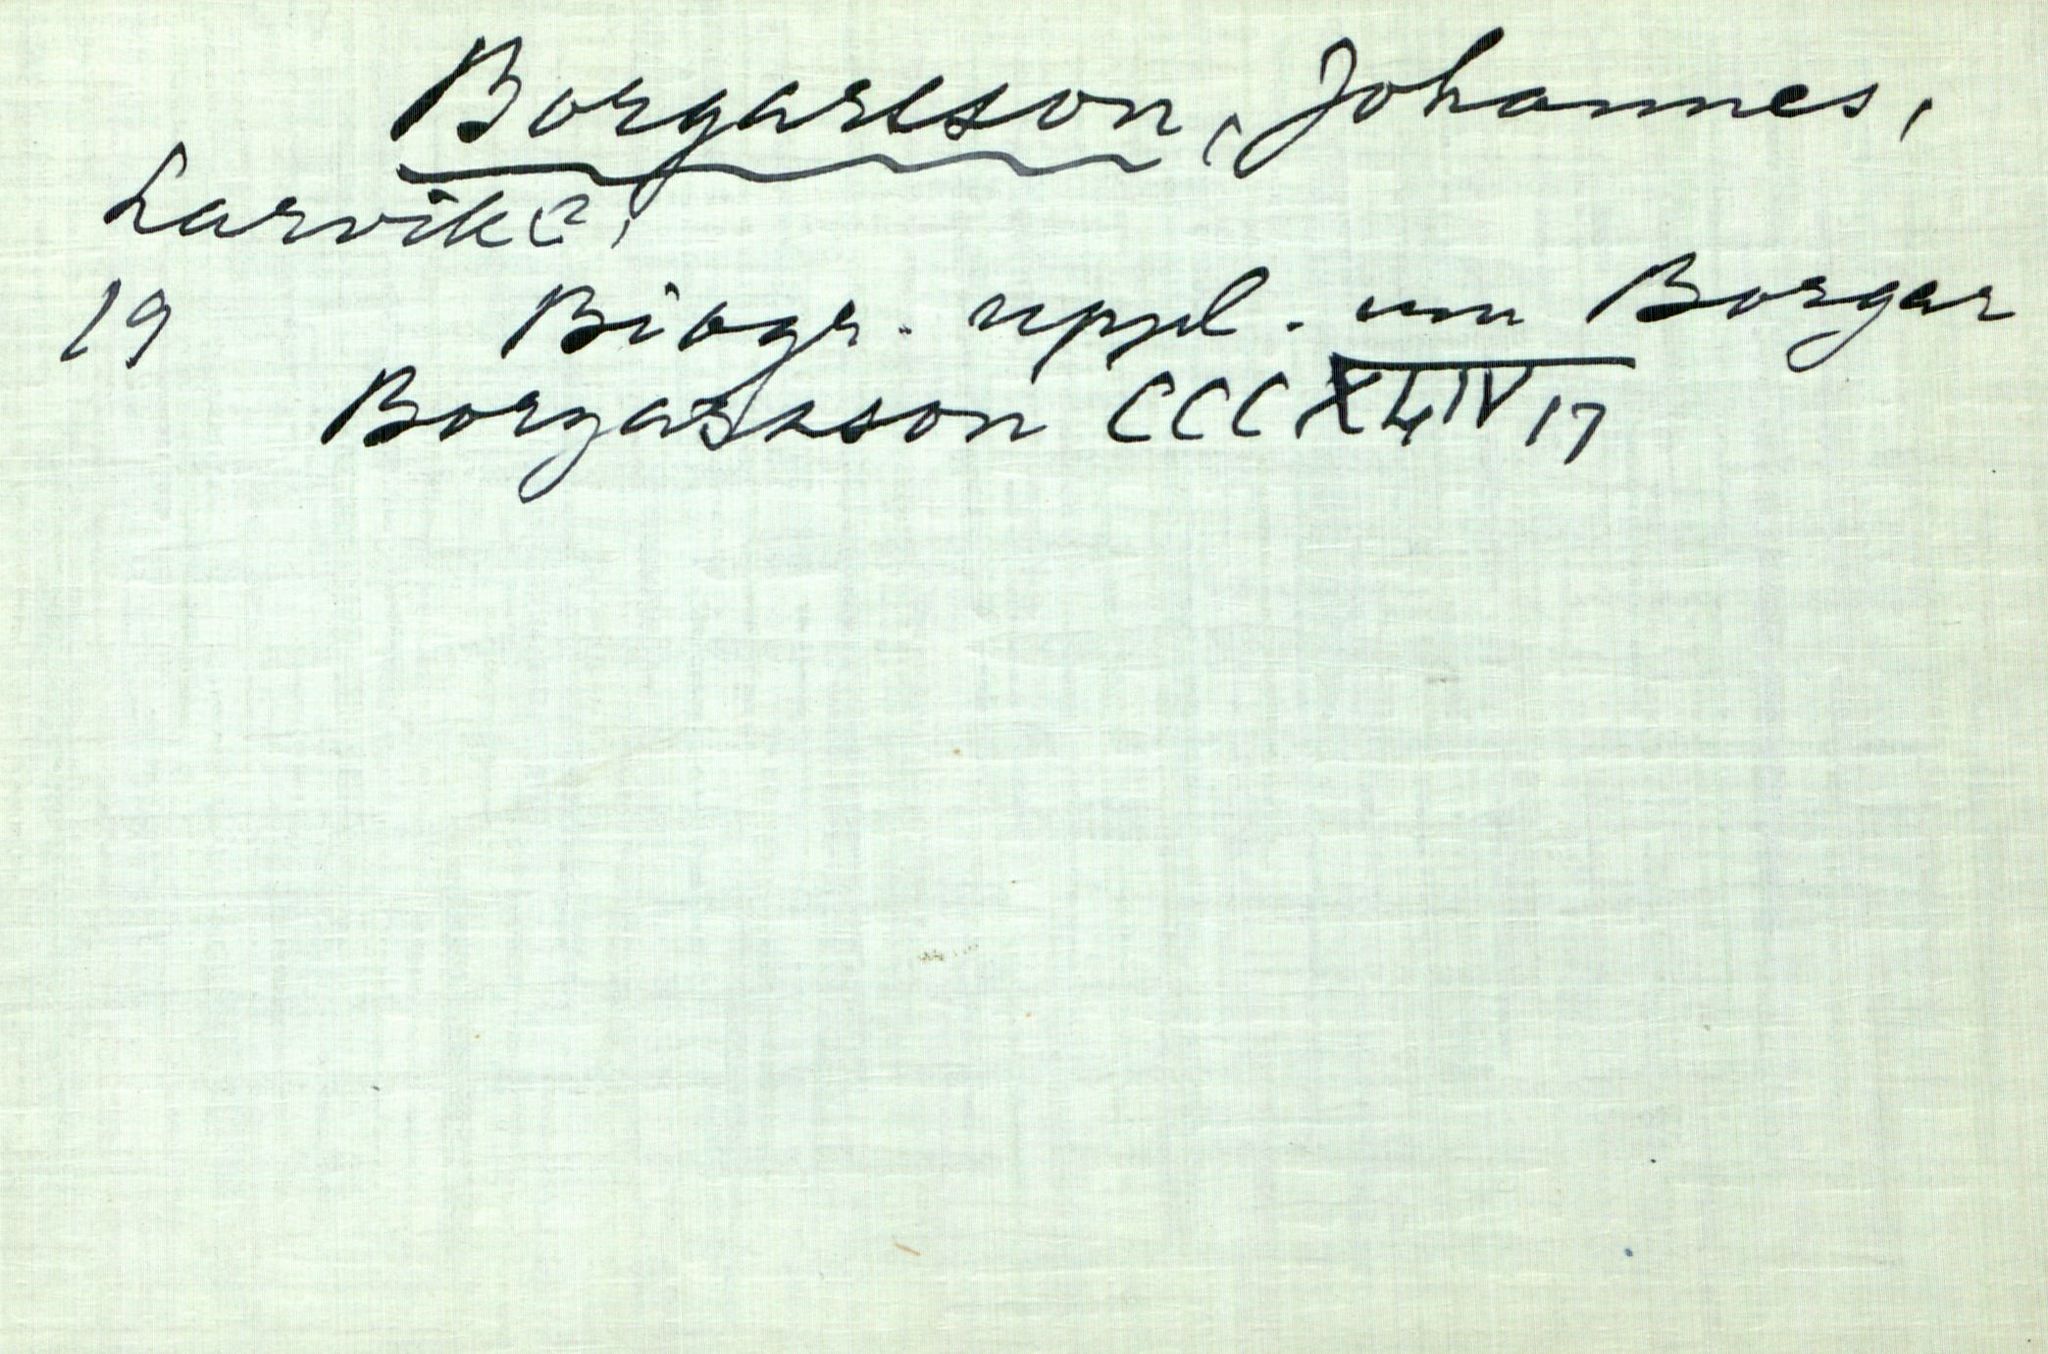 Borgarsson, Johannes,
Larvik?,
19 Biogr. uppl. um Borgar
Borgarsson CCCXLIV 17